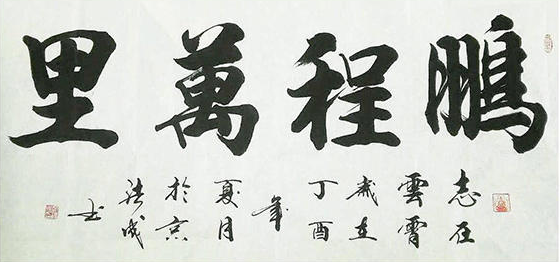 鵬程萬里
志在
雲霄
歲在
丁酉
年
夏月
於京
成
书